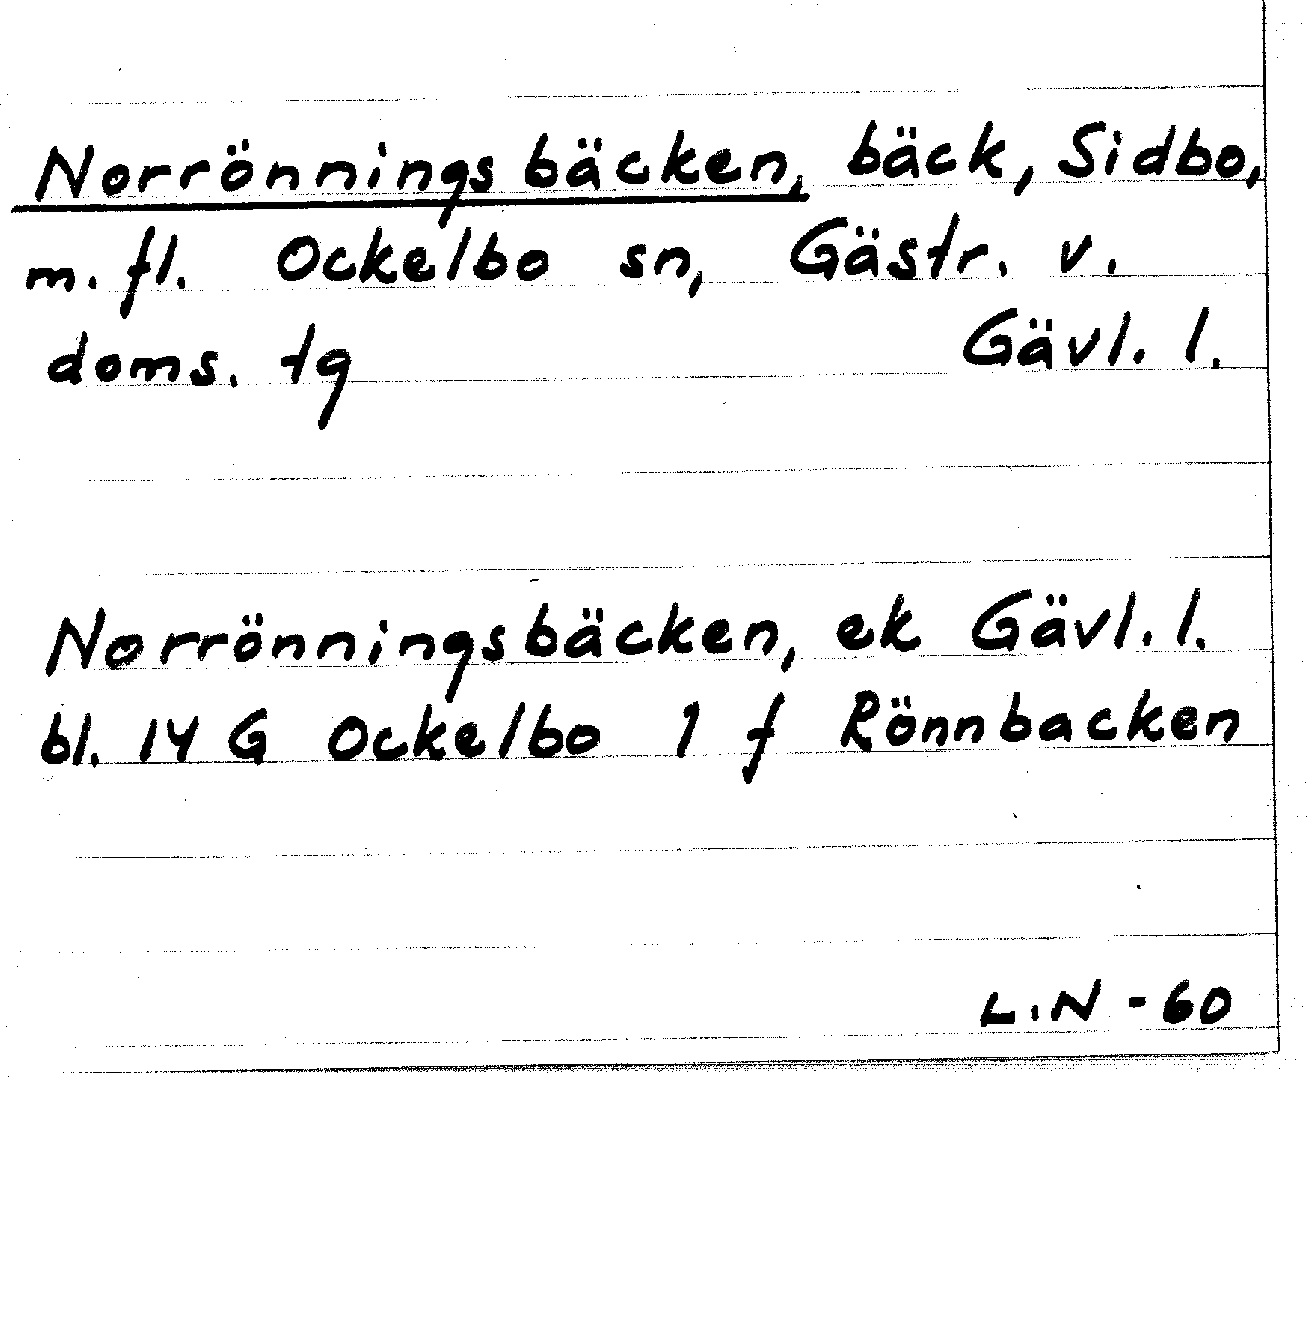 Norrönningsbäcken, bäck, Sidbo,
m. fl. Ockelbo sn, Gästr. v.
doms. tg Gävl. l.
Norrönningsbäcken, ek Gävl. l.
bl. 14 G Ockelbo 1 f Rönnbacken
L.N - 60